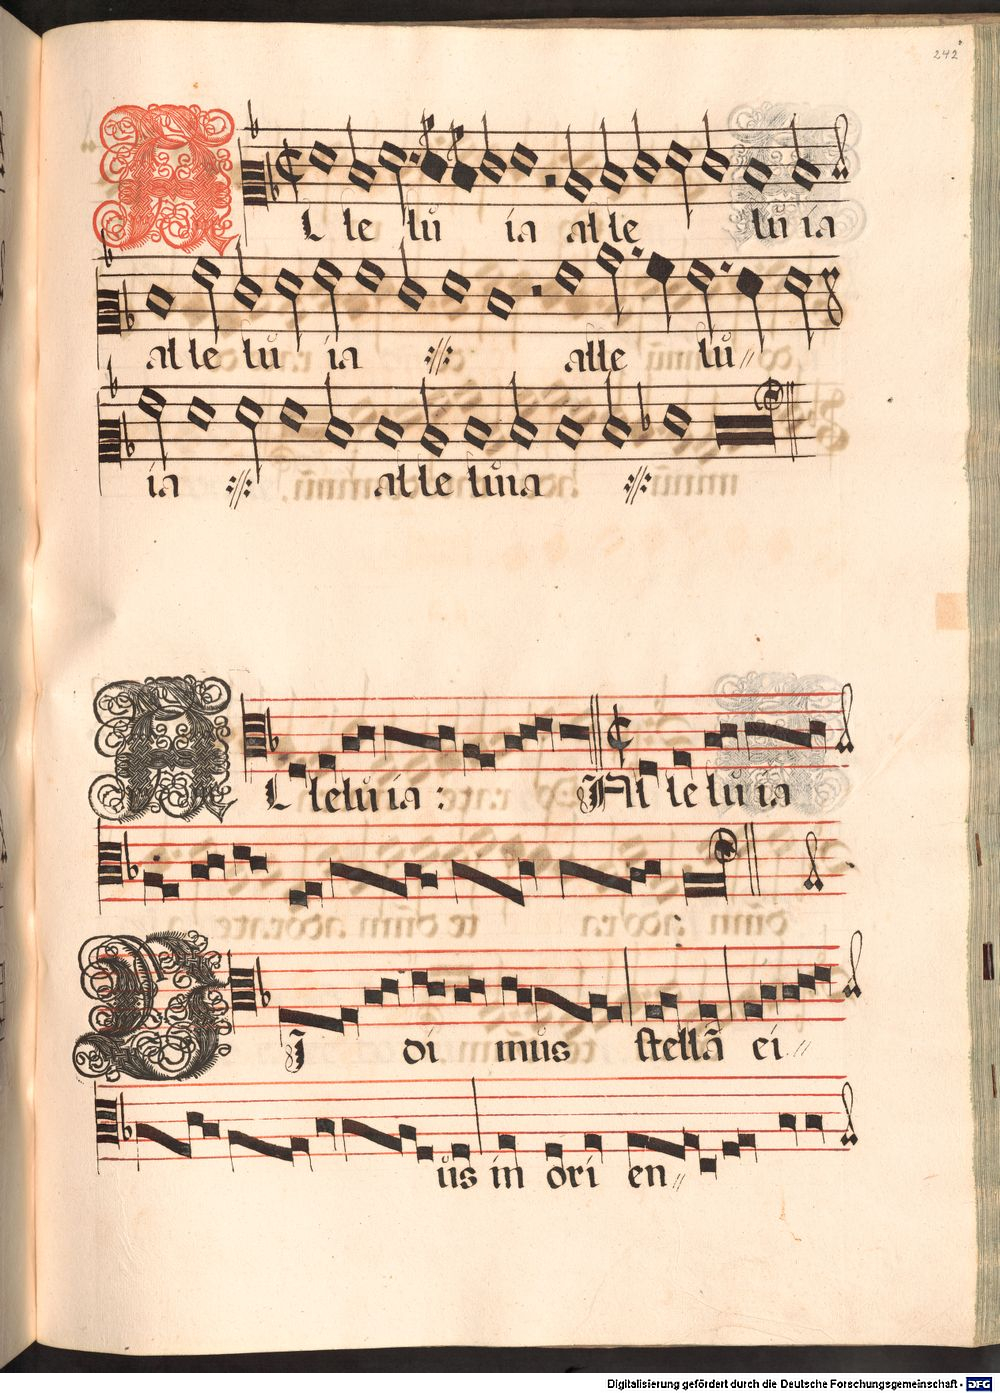 242
AL le lu ia al le lu ia
al le lu ia ://: alle lu //
ia ://: al le luia ://:
AL leluia : Al le lu ia
VI di mus stellã ei //
us in ori en //
Digitalisierung gefördert durch die Deutsche Forschungsgemeinschaft - DFG